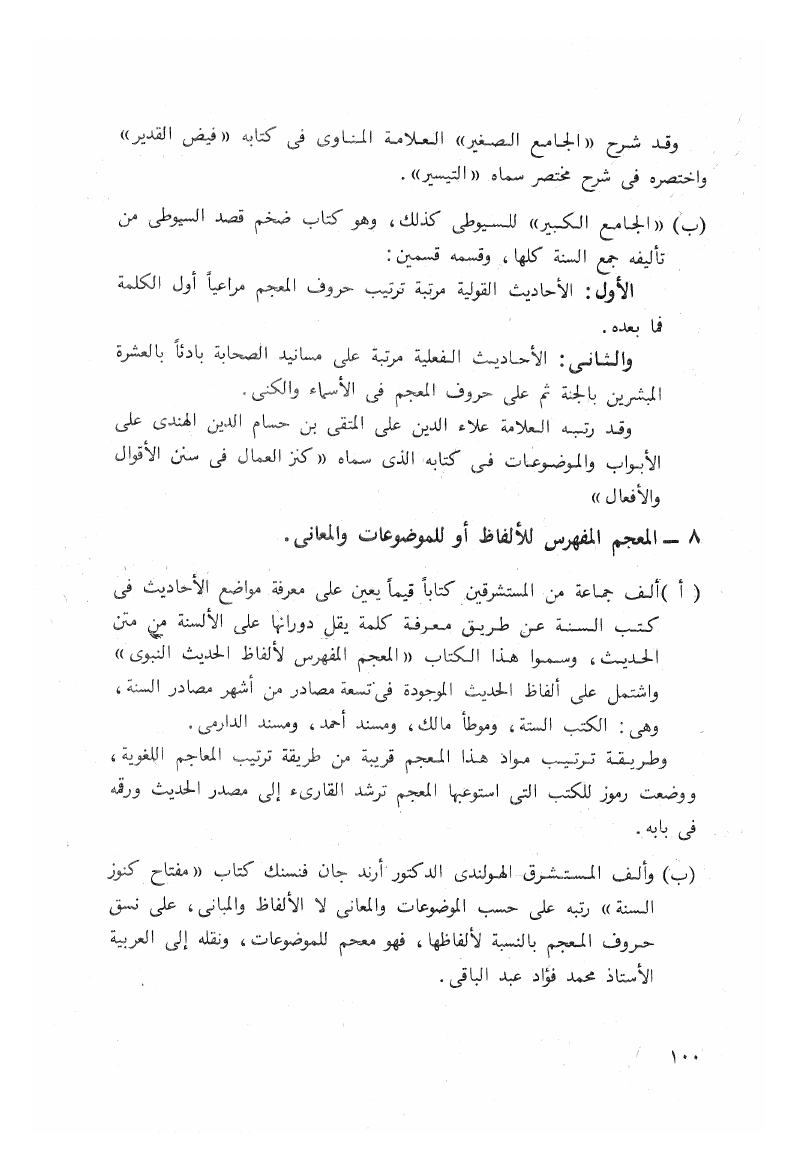 وقد شرح «الجامع الصغير» العلامة المناوى فى كتابه «فيض القدير»
واختصره فى شرح مختصر سماه «التيسير».
(ب) «الجامع الكبير» للسيوطى كذلك، وهو كتاب ضخم قصد السيوطى من
تأليفه جمع السنة كلها، وقسمه قسمين:
الأول: الأحاديث القولية مرتبة ترتيب حروف المعجم مراعياً أول الكلمة
فما بعده.
والثانى: الأحاديث الفعلية مرتبة على مسانيد الصحابة بادئاً بالعشرة
المبشرين بالجنة ثم على حروف المعجم فى الأسماء والكنى.
وقد رتبه العلامة علاء الدين على المتقى بن حسام الدين الهندى على
الأبواب والموضوعات فى كتابه الذى سماه «كنز العمال فى سنن الأقوال
والأفعال»
٨ – المعجم المفهرس للألفاظ أو للموضوعات والمعانى.
( أ )ألف جماعة من المستشرقين كتاباً قيماً يعين على معرفة مواضع الأحاديث فى
كتب السنة عن طريق معرفة كلمة يقل دورانها على الألسنة من متن
الحديث، وسموا هذا الكتاب «المعجم المفهرس لألفاظ الحديث النبوى»
واشتمل على ألفاظ الحديث الموجودة فى تسعة مصادر من أشهر مصادر السنة،
وهى: الكتب الستة، وموطأ مالك، ومسند أحمد، ومسند الدارمى.
وطريقة ترتيب مواد هذا المعجم قريبة من طريقة ترتيب المعاجم اللغوية،
ووضعت رموز للكتب التى استوعبها المعجم ترشد القارىء إلى مصدر الحديث ورقمه
فى بابه.
(ب) وألف المستشرق الهولندى الدكتور أرند جان فنسنك كتاب «مفتاح كنوز
السنة» رتبه على حسب الموضوعات والمعانى لا الألفاظ والمبانى، على نسق
حروف المعجم بالنسبة لألفاظها، فهو معجم للموضوعات، ونقله إلى العربية
الأستاذ محمد فؤاد عبد الباقى.
١٠٠